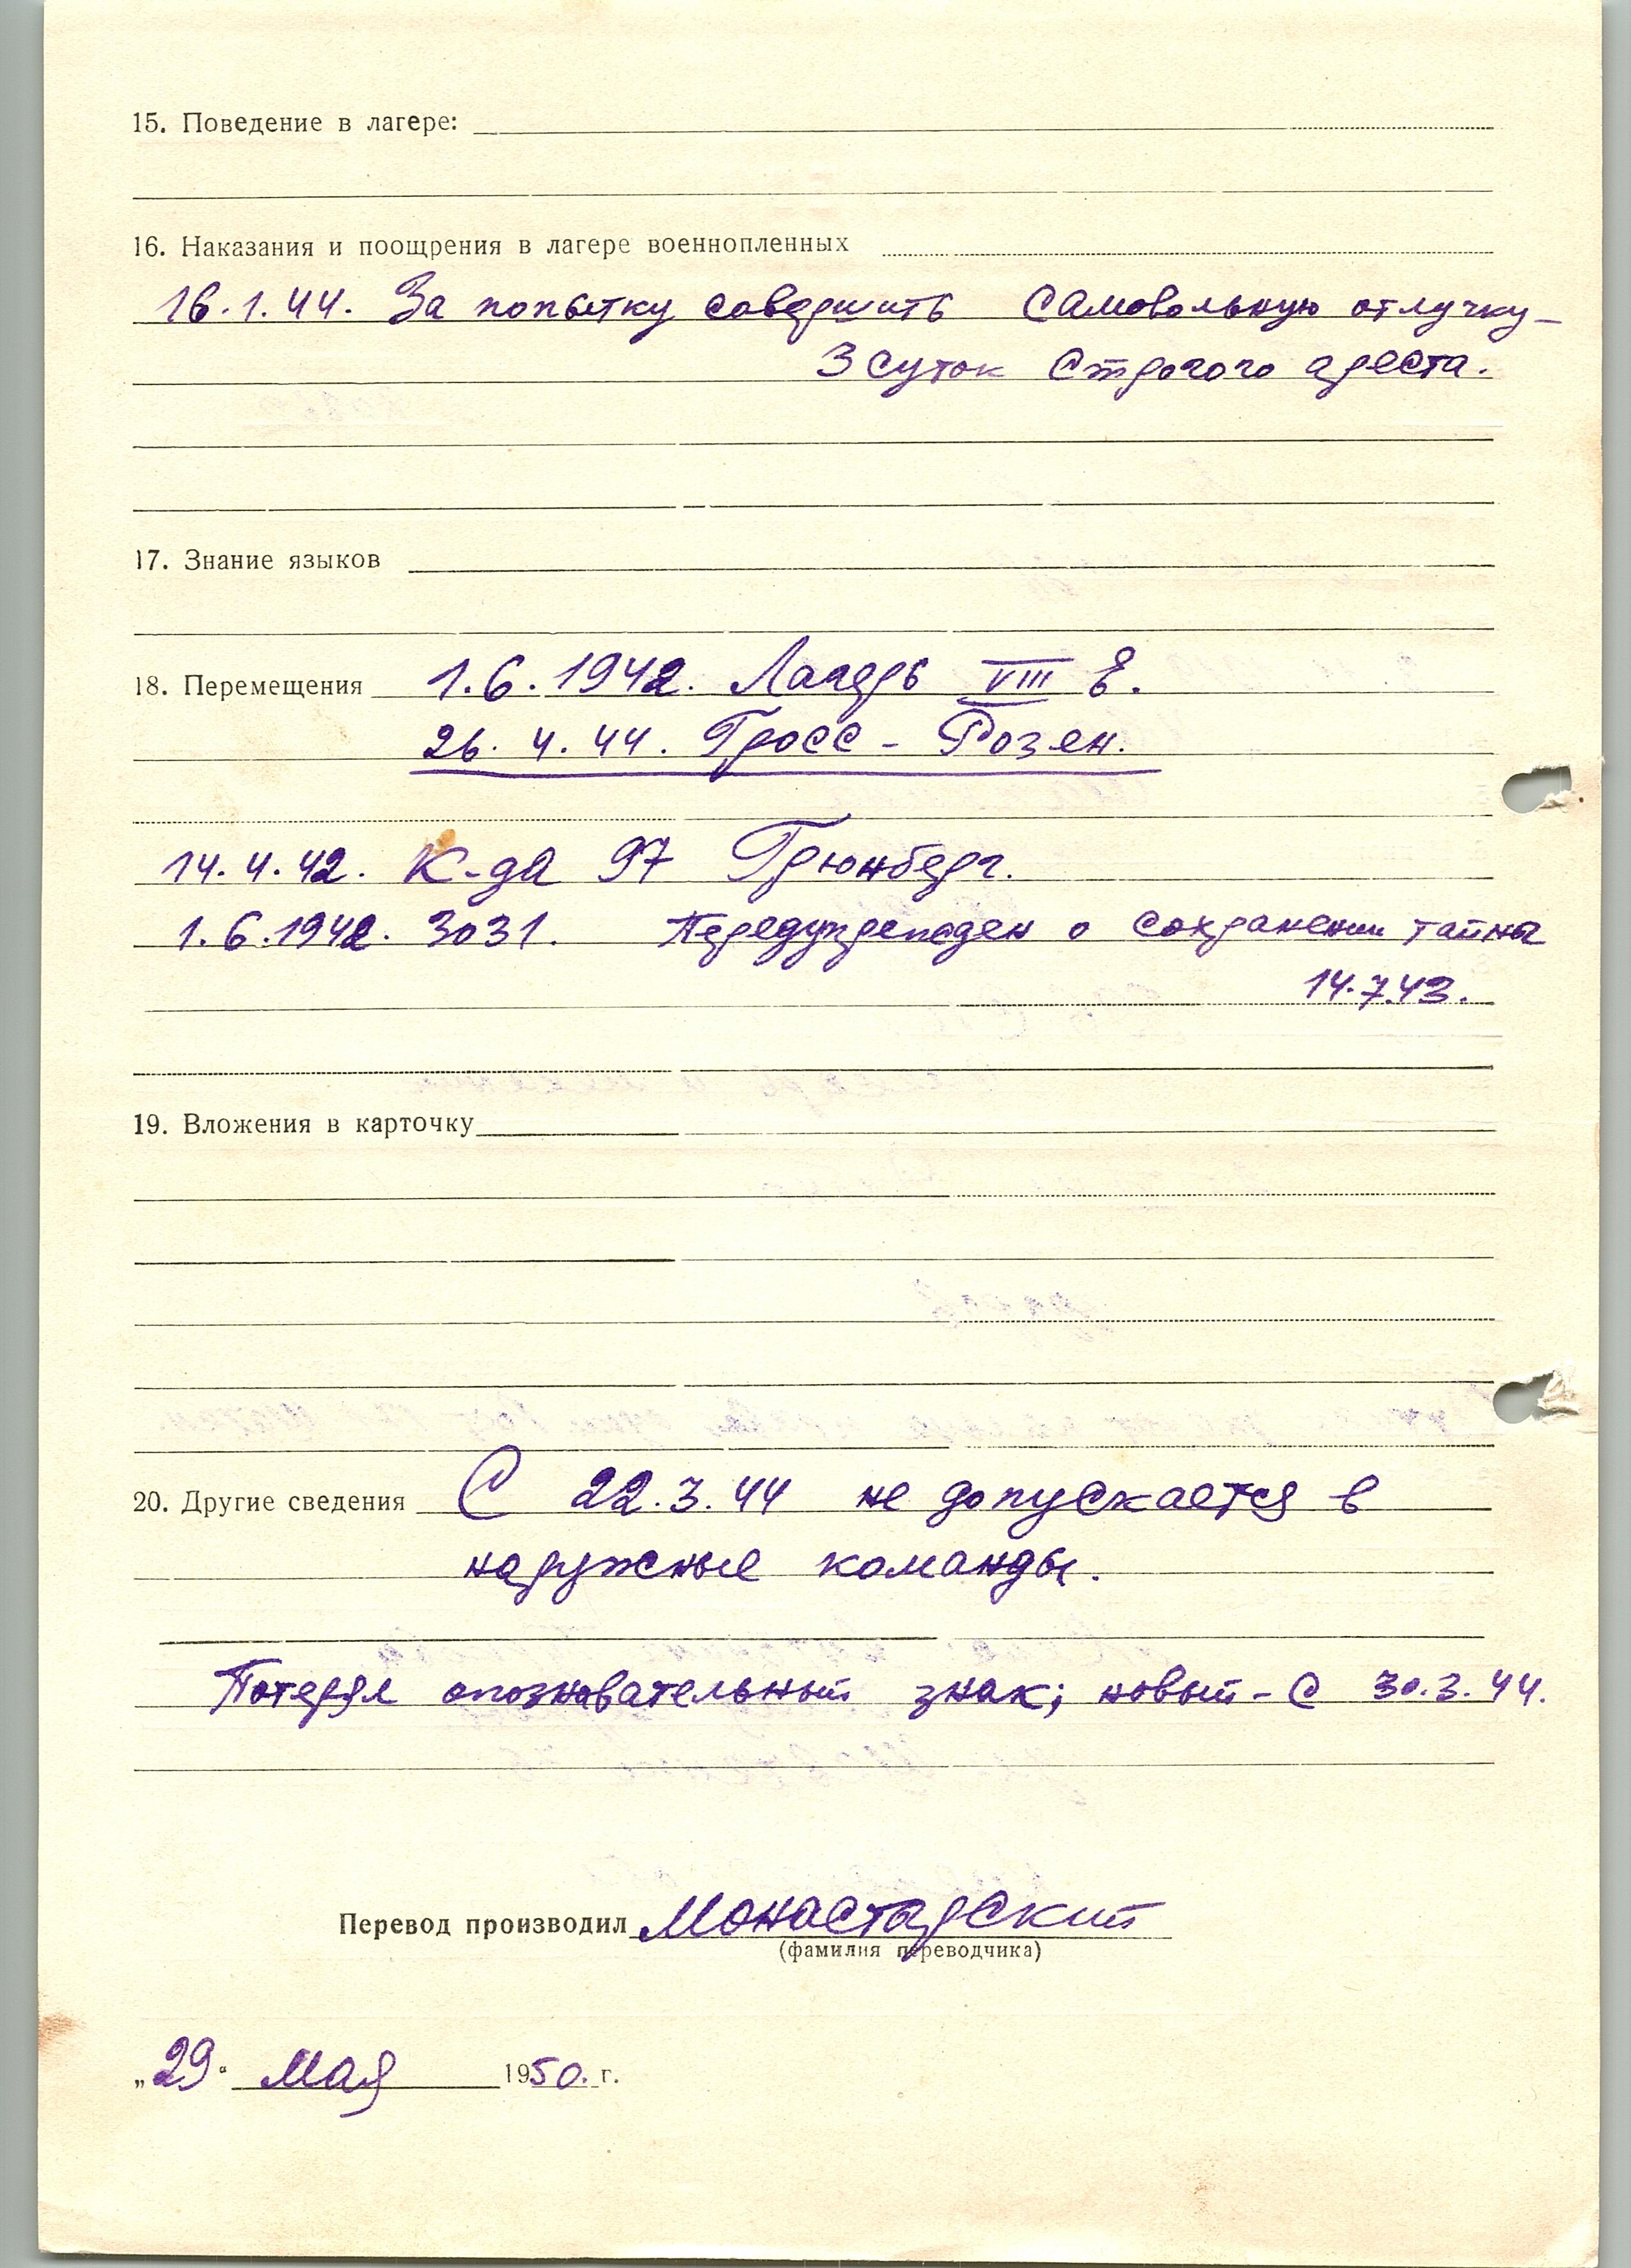 15. Поведение в лагере:
16. Наказания и поощрения в лагере военнопленных
16.1.44. За попытку совершить самовольную отлучку –
3 суток строгого ареста.
17. Знание языков
18. Перемещения 1.6.1942. Лагерь VIII E.
26.4.44. Гросс-Розен.
14.4.42. К-да 97 Грюнберг.
1.6.1942. 3031. Передупрежден о сохранении тайны
14.7.43.
19. Вложения в карточку
20. Другие сведения С 22.3.44 не допускается в
наружные команды.
Потерял опознавательный знак; новый - с 30.3.44.
Перевод производил Монастарский
(фамилия переводчика)
„29“ мая 1950. г.